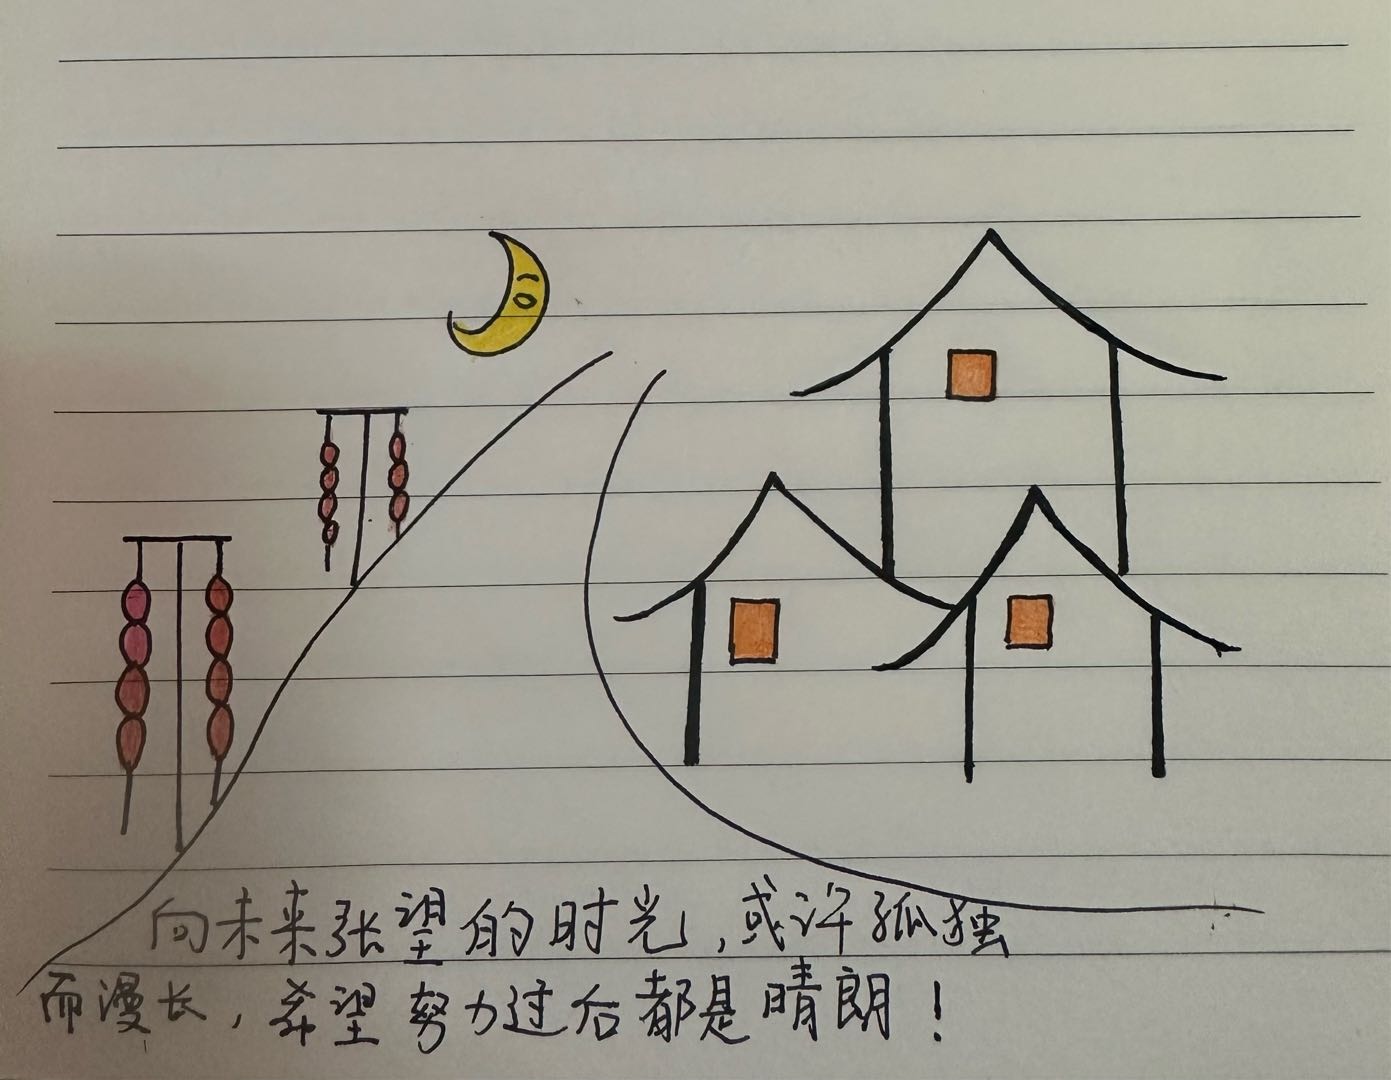 向未来张望的时光,或许孤独
而漫长,希望努力过后都是晴朗!